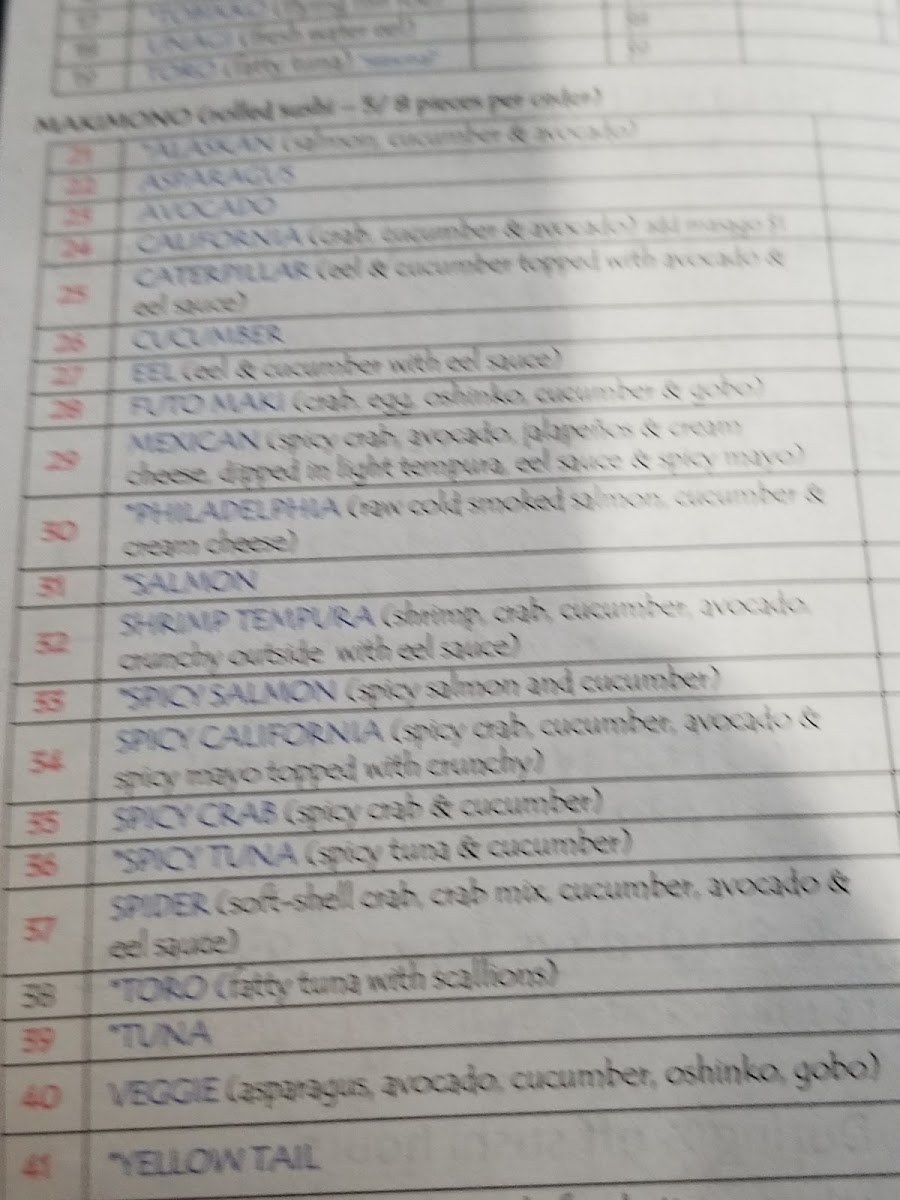 *TOBIKKO (flying fish roe)
18 UNAGI (fresh water eel)
19 TORO (fatty tuna)
MAKIMONO (rolled sushi – 5/ 8 pieces per order)
21 *ALASKAN (salmon, cucumber & avocado)
22 ASPARAGUS
23 AVOCADO
24 CALIFORNIA (crab, cucumber & avocado) add masago $1
25 CATERPILLAR (eel & cucumber topped with avocado &
eel sauce)
26 CUCUMBER
27 EEL (eel & cucumber with eel sauce)
28 FUTO MAKI (crab, egg, oshinko, cucumber & gobo)
29 MEXICAN (spicy crab, avocado, jalapeños & cream
cheese, dipped in light tempura, eel sauce & spicy mayo)
30 *PHILADELPHIA (raw cold smoked salmon, cucumber &
cream cheese)
31 *SALMON
32 SHRIMP TEMPURA (shrimp, crab, cucumber, avocado,
crunchy outside with eel sauce)
33 *SPICY SALMON (spicy salmon and cucumber)
34 SPICY CALIFORNIA (spicy crab, cucumber, avocado &
spicy mayo topped with crunchy)
35 SPICY CRAB (spicy crab & cucumber)
36 *SPICY TUNA (spicy tuna & cucumber)
37 SPIDER (soft-shell crab, crab mix, cucumber, avocado &
eel sauce)
38 *TORO (fatty tuna with scallions)
39 *TUNA
40 VEGGIE (asparagus, avocado, cucumber, oshinko, gobo)
41 *YELLOW TAIL